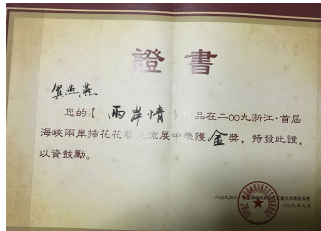 證書
燕
您的【兩岸情】作品在二00九浙江·首届
海峽兩岸插花花藝交流展中榮獲金獎，特發此證，
以資鼓勵。